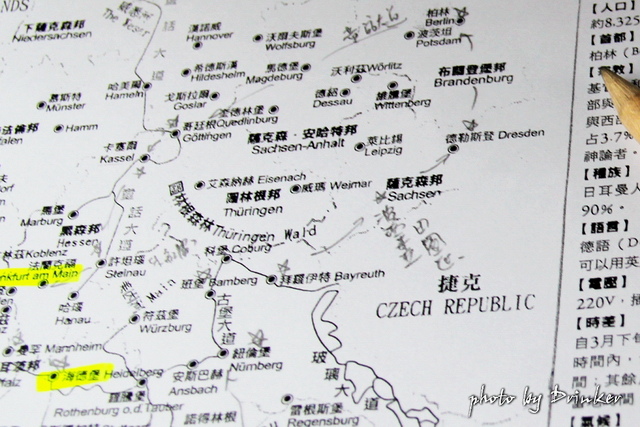 NDS)
下薩克森邦
Niedersachsen
The Weser
童話大道
漢諾威
Hannover
沃爾夫斯堡
Wolfsburg
柏林
Berlin
波茨坦
Potsdam
希德斯漢
Hildesheim
馬德堡
Magdeburg
沃利茲Wörlitz
布蘭登堡邦
Brandenburg
哈美爾
Hameln
慕斯特
Münster
戈斯拉爾
Goslar
德紹
Dessau
威騰堡
Wittenberg
奎德林堡
Quedlinburg
Hamm
哥廷根
Göttingen
薩克森·安哈特邦
Sachsen-Anhalt
萊比錫
Leipzig
德勒斯登 Dresden
卡塞爾
Kassel
艾森納赫 Eisenach
威瑪 Weimar
圖林根邦
Thüringen
薩克森邦
Sachsen
圖林根森林Thüringen Wald
童話大道
馬堡
Marburg
黑森邦
Hessen
Koblenz
法蘭克福
nkfurt am Main
許坦瑙
Steinau
科堡 Coburg
班堡 Bamberg
拜羅伊特 Bayreuth
捷克
CZECH REPUBLIC
哈瑙
Hanau
Main
符茲堡
Würzburg
古堡大道
曼罕 Mannheim
海德堡 Heidelberg
紐倫堡
Nürnberg
安斯巴赫
Ansbach
玻璃大道
羅騰堡
Rothenburg o.d.Tauber
諾得林根
雷根斯堡
Regensburg
【人口】
約8.325
【首都】
柏林(B
【宗教】
基
部與
與西
占3.7%
神論者
【種族】
日耳曼人
90%。
【語言】
德語(D
可以用英
【電壓】
220V,插
【時差】
自3月下旬
時間內,
間,其餘
【氣候】
photo by Drinker